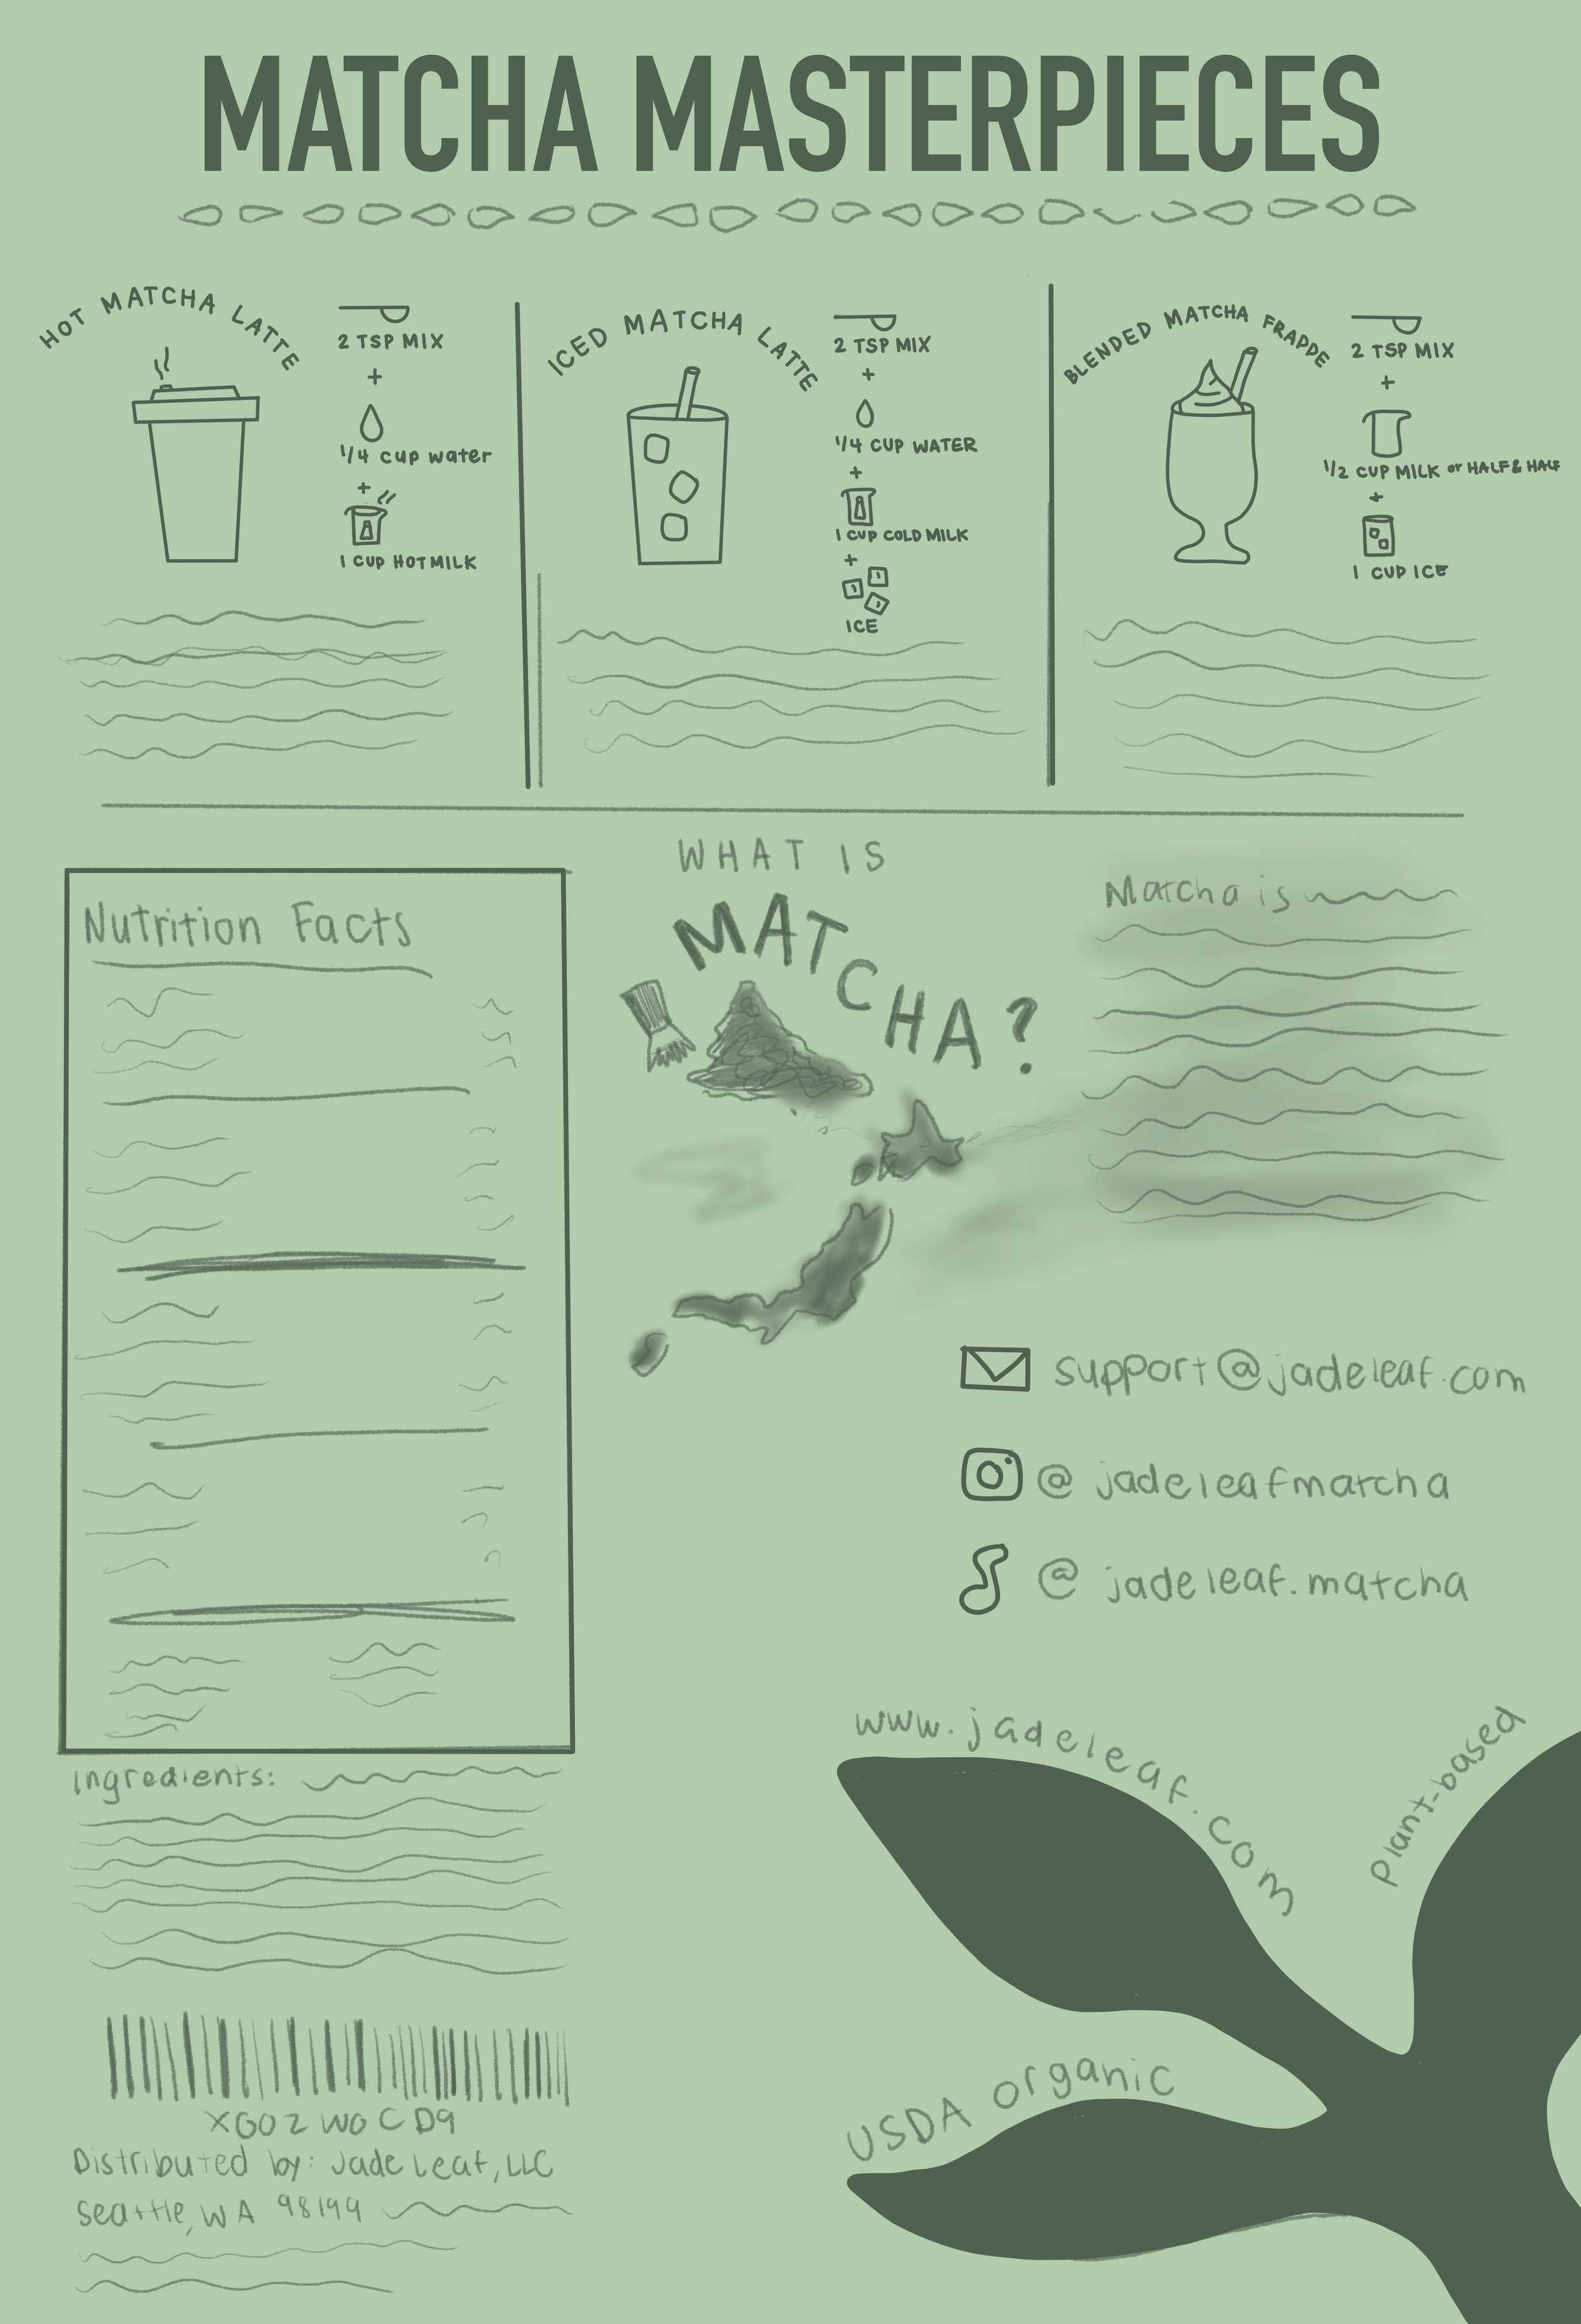 MATCHA MASTERPIECES
HOT MATCHA LATTE
2 TSP MIX
+
1/4 cup water
+
1 CUP HOT MILK
ICED MATCHA LATTE
2 TSP MIX
+
1/4 CUP WATER
+
1 CUP COLD MILK
+
ICE
BLENDED MATCHA FRAPPE
2 TSP MIX
+
1/2 CUP MILK or HALF & HALF
+
1 CUP ICE
Nutrition Facts
WHAT IS
MATCHA?
Matcha is
support@jadeleaf.com
@jadeleafmatcha
@jadeleaf.matcha
Ingredients:
XG02W0CD9
Distributed by: Jade Leaf, LLC
Seattle, WA 98199
www.jadeleaf.com
Plant-based
USDA organic